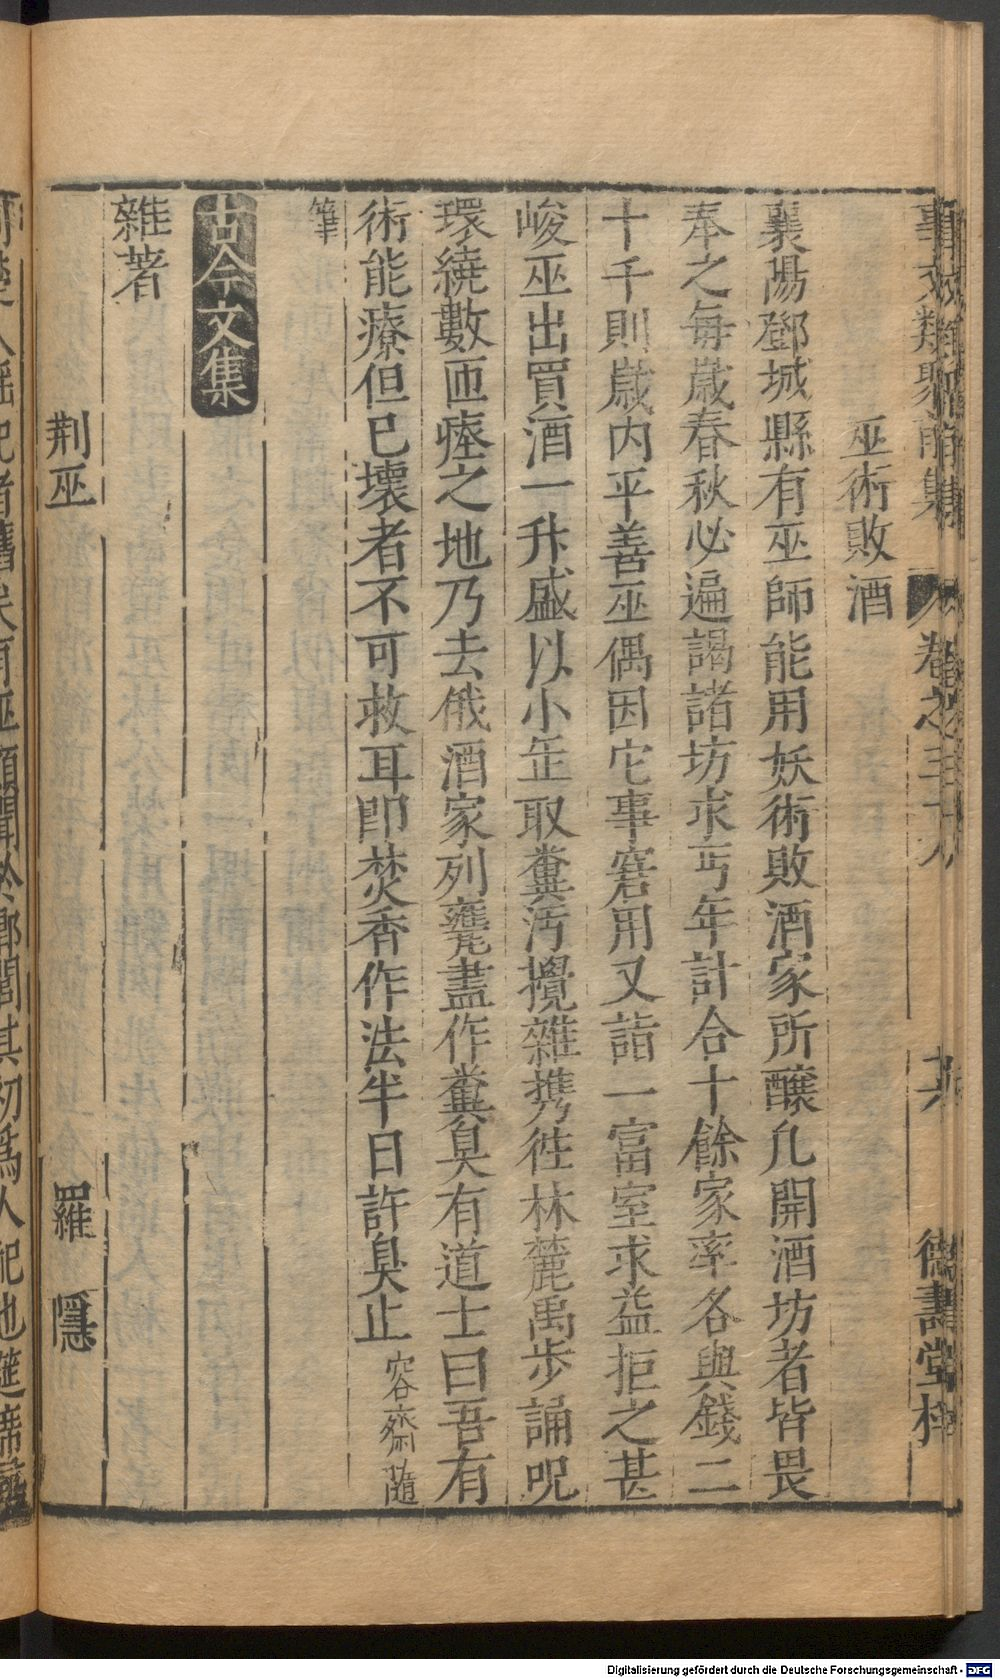 事文類聚前集 卷之三十八 共 德壽堂梓
巫術敗酒
襄陽鄧城縣有巫師能用妖術敗酒家所釀凡開酒坊者皆畏
奉之每歲春秋必遍謁諸坊求丐年計合十餘家率各與錢二
十千則歲内平善巫偶因它事窘用又詣一富室求益拒之甚
峻巫出買酒一升盛以小缶取糞汚攪雜携徃林麓禹步誦呪
環繞數匝瘞之地乃去俄酒家列甕盡作糞臭有道士曰吾有
術能療但已壞者不可救耳即焚香作法半日許臭止 容齋隨
筆
古今文集
雜著
荆巫 羅隱
楚人淫祀者舊矣有巫頗聞於鄉閭其初爲人祀也筵席
Digitalisierung gefördert durch die Deutsche Forschungsgemeinschaft - DFG